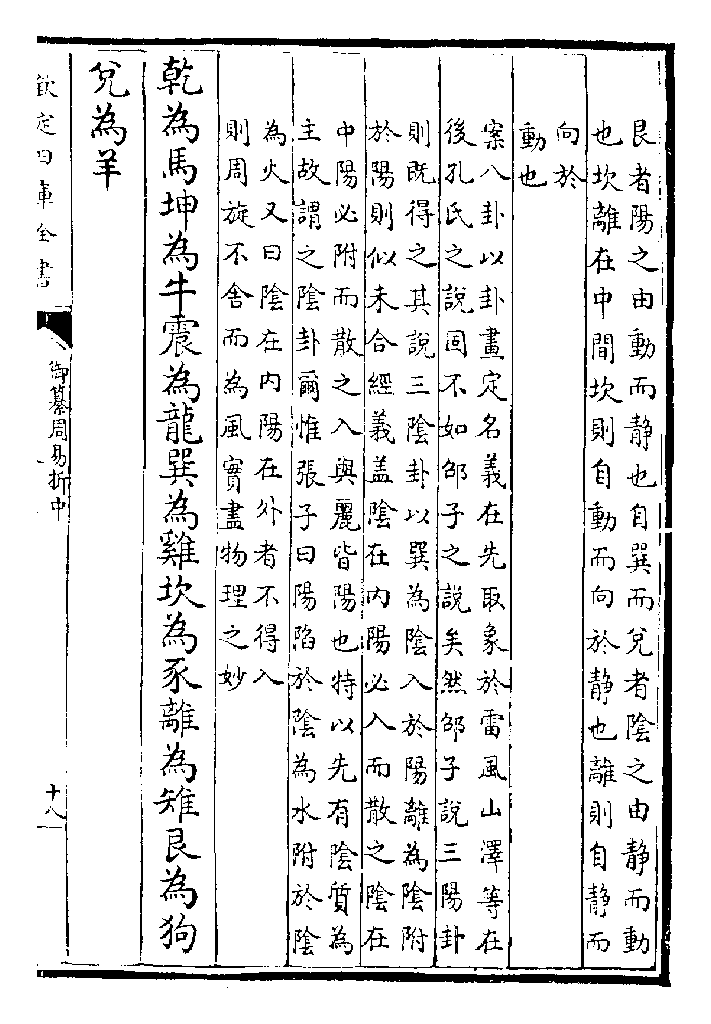 艮者陽之由動而静也自巽而兌者陰之由静而動
也坎離在中間坎則自動而向於静也離則自静而
向於
動也
案八卦以卦畫定名義在先取象於雷風山澤等在
後孔氏之說固不如邵子之說矣然邵子說三陽卦
則既得之其說三陰卦以巽為陰入於陽離為陰附
於陽則似未合經義盖陰在内陽必入而散之陰在
中陽必附而散之入與麗皆陽也特以先有陰質為
主故謂之陰卦爾惟張子曰陽陷於陰為水附於陰
為火又曰陰在内陽在外者不得入
則周旋不舍而為風實盡物理之妙
乾為馬坤為牛震為龍巽為雞坎為豕離為雉艮為狗
兌為羊
欽定四庫全書
御纂周易折中
十八